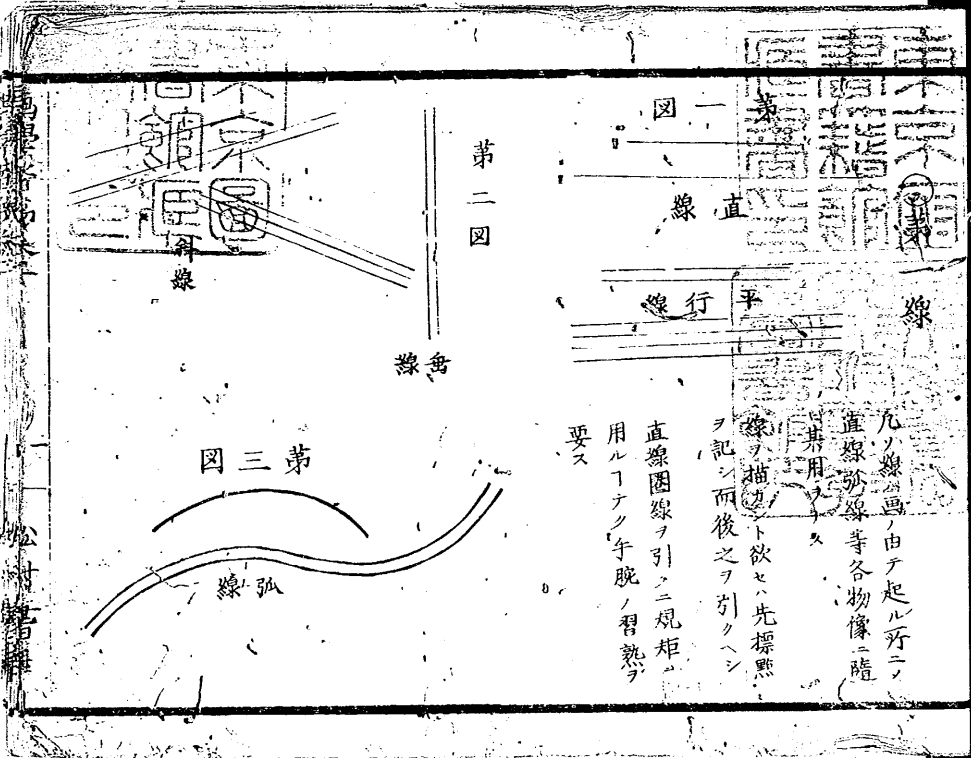 第一
線
凡ソ線ハ画ノ由テ起ル所ニノ
直線弧線等各物像ニ隨
ヒ其用ヲナス
線ヲ描カント欲セハ先標點
ヲ記シ而後之ヲ引クヘシ
直線圏線ヲ引クニ規矩ヲ
用ルヿナク手腕ノ習熟ヲ
要ス
第一図
直線
平行線
第二図
垂線
斜線
第三図
弧線